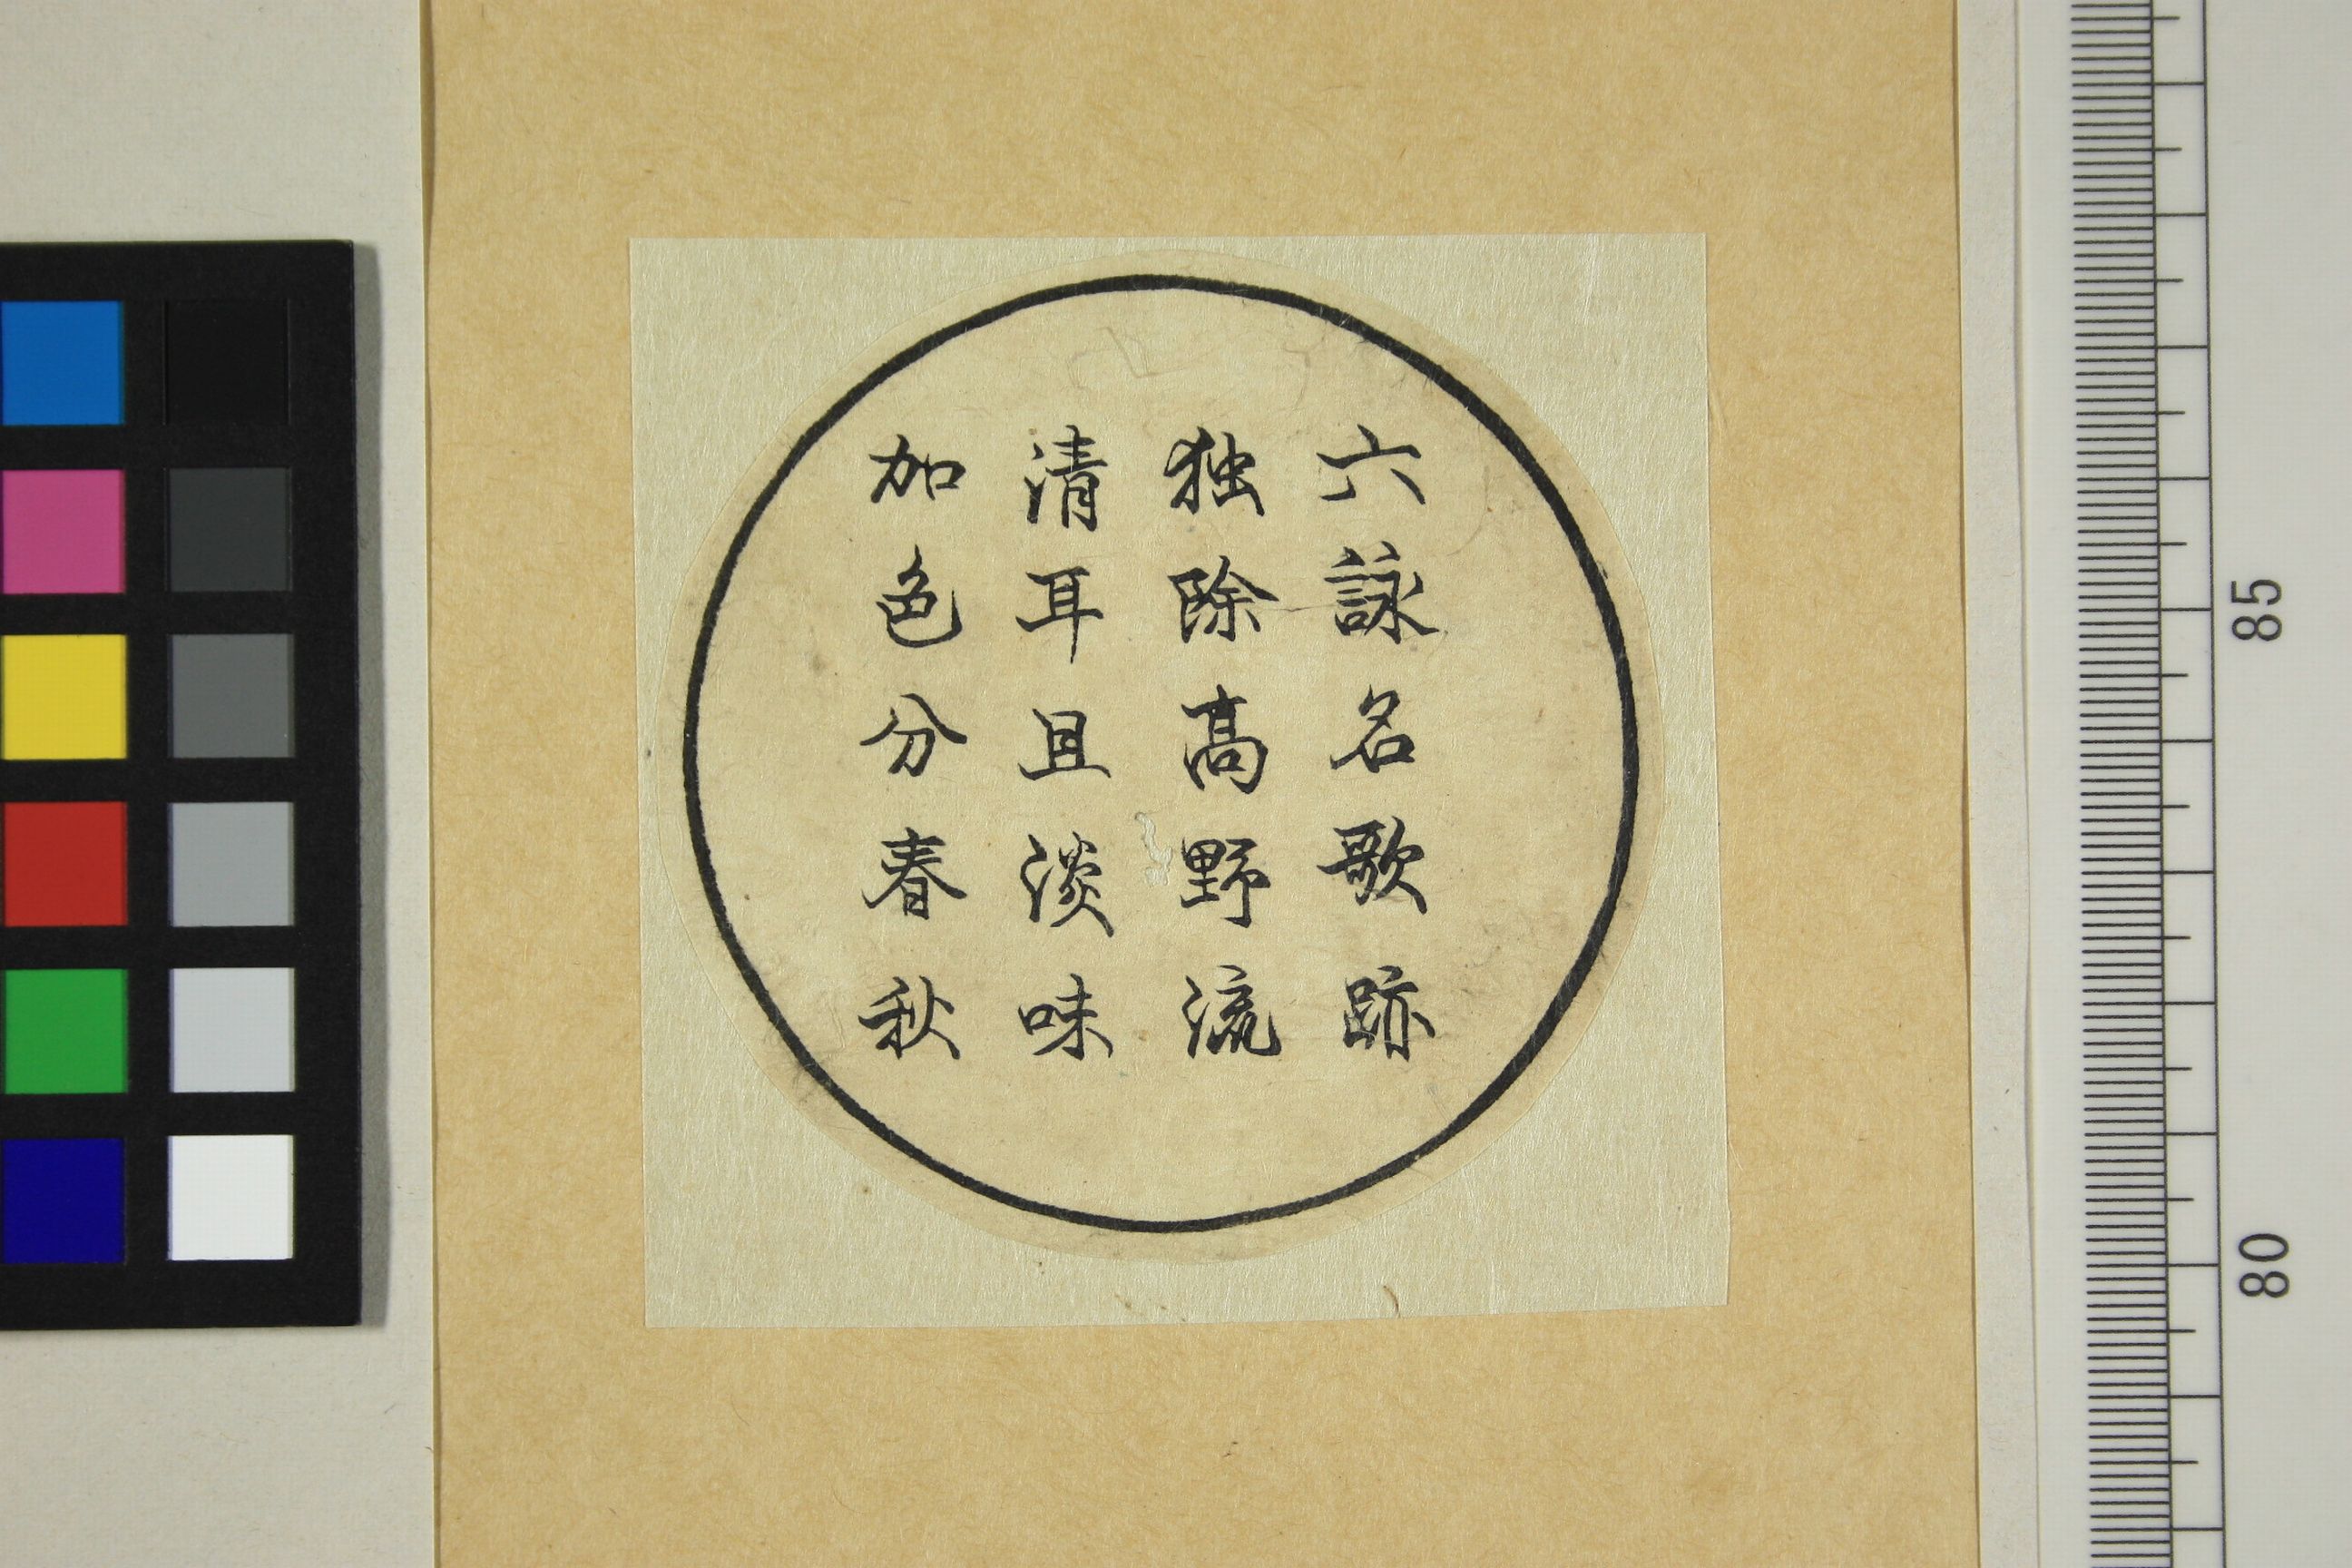 六詠名歌跡
独除高野流
清耳且淡味
加色分春秋
85
80